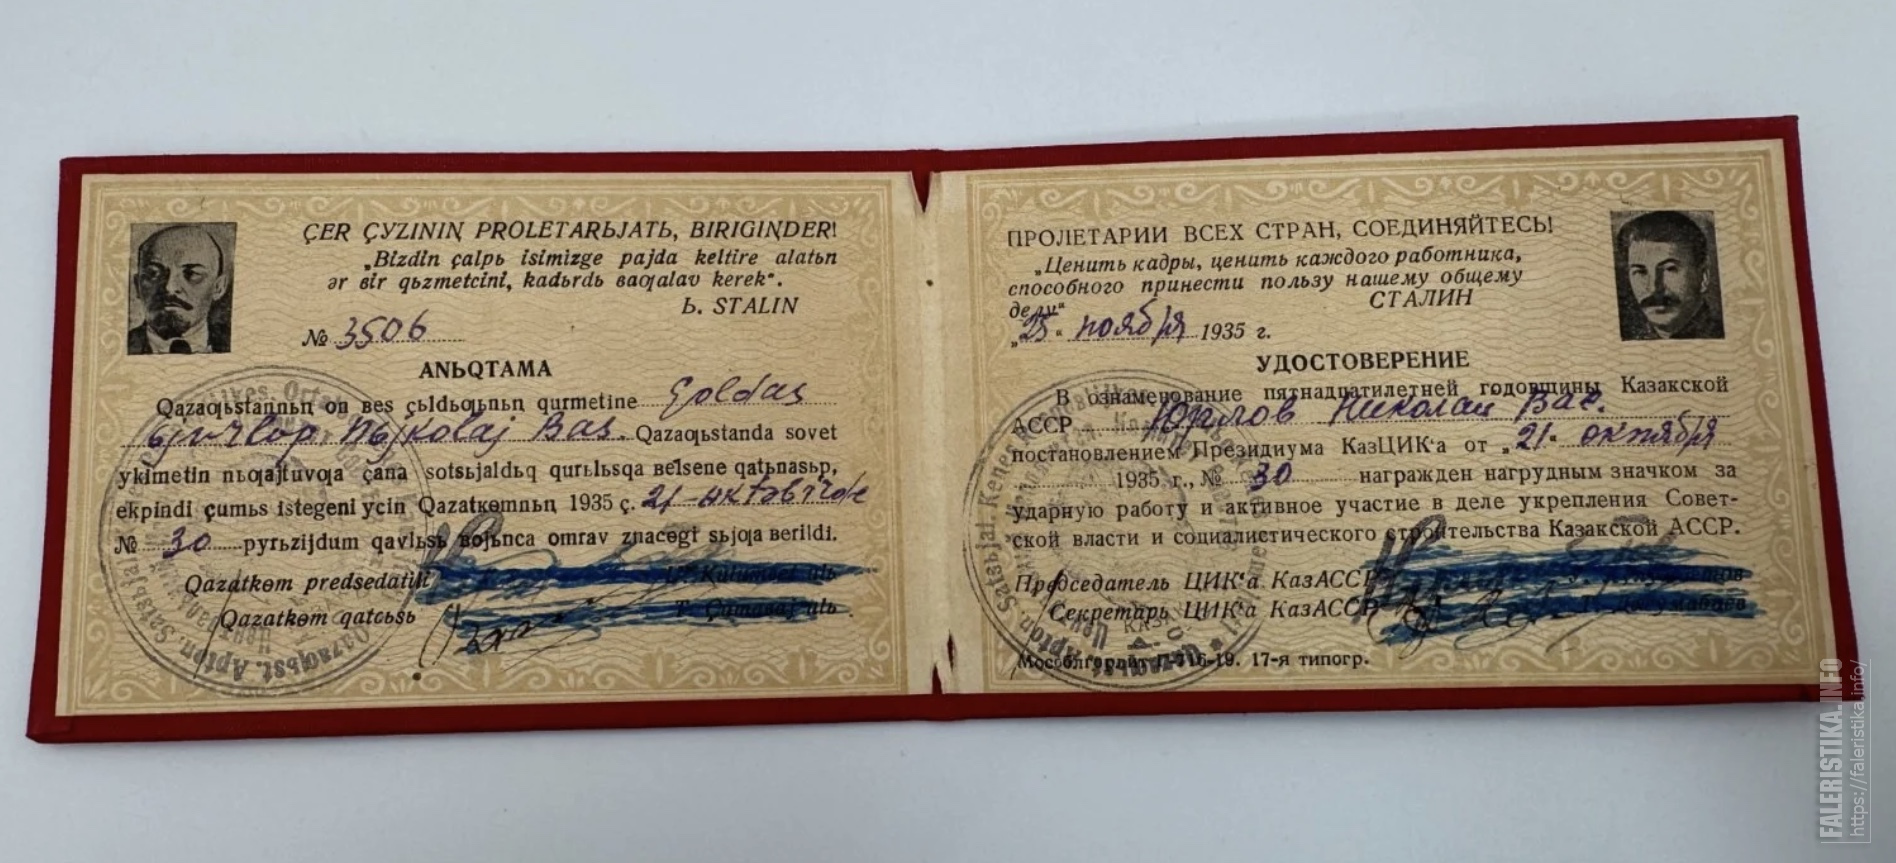 ÇER ÇYZININ̡ PROLETARЬJATЬ, BIRIGIN̡DER!
„Bizdin çalpь isimizge pajda keltire alatьn
ər вir qьzmetcini, kadьrdь вaƣalav kerek“.
Ь. STALIN
№ 3506
ANЬQTAMA
Qazaƣьstannьn̡ on вes çьldьƣьnьn̡ qurmetine Çoldas
Bas. Qazaƣьstanda sovet
ykimetin nьƣajtuvƣa çana sotsьjaldьq qurьlьsqa вelsene qatьnasьp,
ekpindi çumьs istegeni ycin Qazatkɵmnьn̡ 1935 ç. 21-
№ 30 pyrьzijdum qavlьsь вojьnca omrav znacogi sьjƣa вerildi.
Qazatkɵm predsedatili
Qazatkɵm qatcьsь
ПРОЛЕТАРИИ ВСЕХ СТРАН, СОЕДИНЯЙТЕСЬ!
„Ценить кадры, ценить каждого работника,
способного принести пользу нашему общему
делу“ СТАЛИН
„25“ ноября 1935 г.
УДОСТОВЕРЕНИЕ
В ознаменование пятнадцатилетней годовщины Казакской
АССР Юрлов Николай Вас.
постановлением Президиума КазЦИК‘а от „21“ октября
1935 г., № 30 награжден нагрудным значком за
ударную работу и активное участие в деле укрепления Совет-
ской власти и социалистического строительства Казакской АССР.
Председатель ЦИК‘а КазАССР
Секретарь ЦИК‘а КазАССР
Мособлгорлит Г-716-19. 17-я типогр.
FALERISTIKA.INFO
https://faleristika.info/